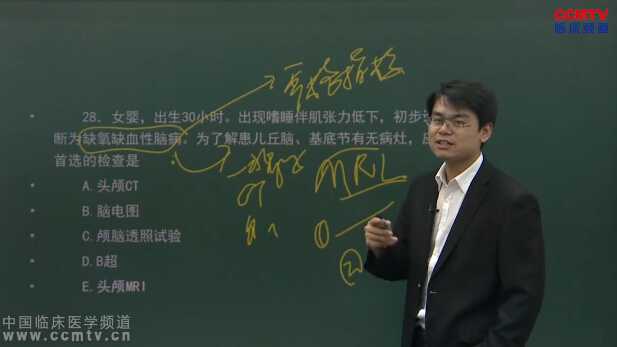 CCMTV
临床频道
28. 女婴，出生30小时。出现嗜睡伴肌张力低下，初步
断为缺氧缺血性脑病。为了解患儿丘脑、基底节有无病灶，
首选的检查是
A. 头颅CT
B. 脑电图
C. 颅脑透照试验
D. B超
E. 头颅MRI
MRI
CT
①
②
中国临床医学频道
www.ccmtv.cn